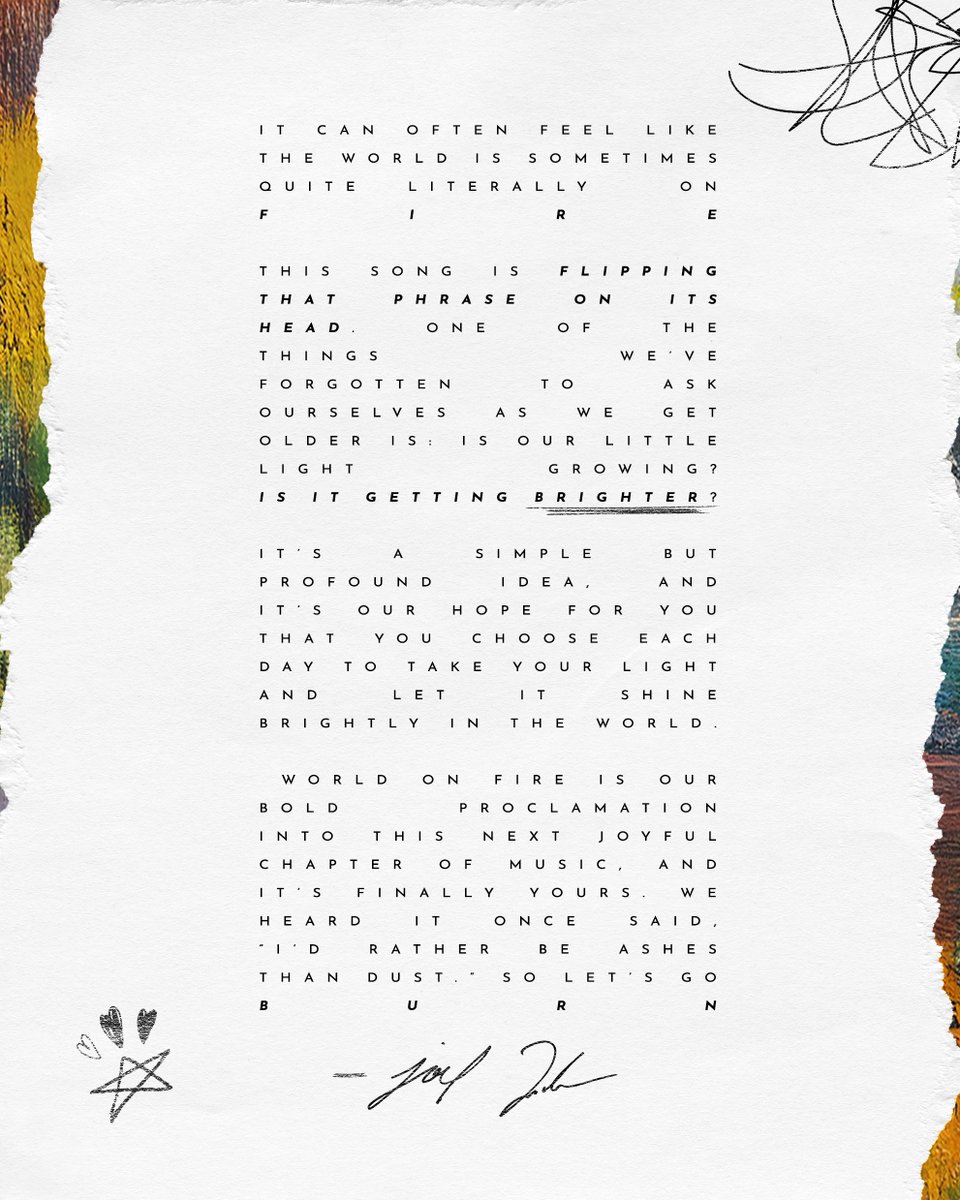 IT CAN OFTEN FEEL LIKE
THE WORLD IS SOMETIMES
QUITE LITERALLY ON
FIRE
THIS SONG IS FLIPPING
THAT PHRASE ON ITS
HEAD. ONE OF THE
THINGS WE'VE
FORGOTTEN TO ASK
OURSELVES AS WE GET
OLDER IS: IS OUR LITTLE
LIGHT GROWING?
IS IT GETTING BRIGHTER?
IT'S A SIMPLE BUT
PROFOUND IDEA, AND
IT'S OUR HOPE FOR YOU
THAT YOU CHOOSE EACH
DAY TO TAKE YOUR LIGHT
AND LET IT SHINE
BRIGHTLY IN THE WORLD.
WORLD ON FIRE IS OUR
BOLD PROCLAMATION
INTO THIS NEXT JOYFUL
CHAPTER OF MUSIC, AND
IT'S FINALLY YOURS. WE
HEARD IT ONCE SAID,
"I'D RATHER BE ASHES
THAN DUST." SO LET'S GO
BURN
— joel